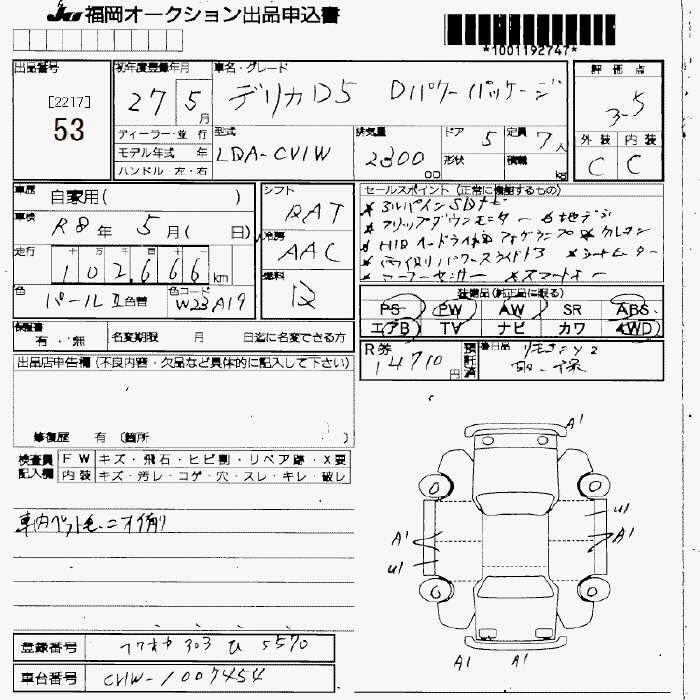 JU 福岡オークション出品申込書
*1001192747*
出品番号
[2217]
53
初年度登録年月
27 5月
車名・グレード
デリカD5 Dパワーパッケージ
評価点
3.5
ディーラー・並行
モデル年式 年
ハンドル 左・右
型式
LDA-CV1W
排気量
2300 cc
ドア 5
形状
定員 7人
積載 kg
外装 内装
C C
車歴 自家用( )
車検 R8年 5月( 日)
走行 十 万 千 百 十
102,666 km
色 パールⅡ 色替
色コード W23A19
シフト
DAT
冷房
AAC
燃料
D
セールスポイント (正常に機能するもの)
★アルパインSDナビ
★フリップダウンモニター ★地デジ
★HIDヘッドライト ★フォグランプ ★クルコン
★両側パワースライドドア ★シートヒーター
★コーナーセンサー ★スマートキー
装備品(新正品に限る)
PS PW AW SR ABS
エアB TV ナビ カワ 4WD
保証書
有・無
名変期限 月 日迄に名変できる方
R券
14710円
預託済
後日品 リモコン×2
取・保
出品店申告欄 (不良内容・欠品など具体的に記入して下さい)
修復歴 有 〔箇所 〕
検査員記入欄
FW キズ・飛石・ヒビ割・リペア跡・X要
内装 キズ・汚レ・コゲ・穴・スレ・キレ・破レ
車内ペット毛、ニオイ有り
A1
U1
A1 A1
U1
A1 A1
登録番号 フクオカ 303 ひ 5570
車台番号 CV1W-1007454